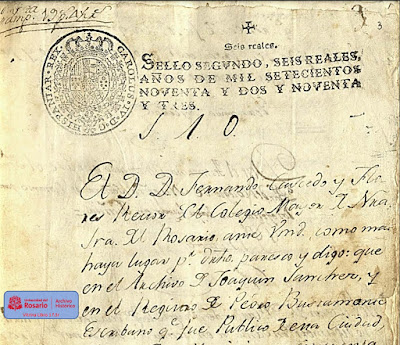 3
Seis reales.
SELLO SEGUNDO, SEIS REALES,
AÑOS DE MIL SETECIENTOS
NOVENTA Y DOS Y NOVENTA
Y TRES.
CAROLUS IV D G HISPANIAR REX
S. 1 0.
El D. D. Fernando Caicedo y Flo
res Rector del Colegio May. en Nra
Sra. del Rosario, ante Vmd. como mas
haya lugar pr. dro. paresco y digo: que
en el Archivo D. Joaquin Sanchez, y
en el Registro de Pedro Bustamante
Escribano qe. fue Publico de esta Ciudad,
Universidad del
Rosario
Archivo
Histórico